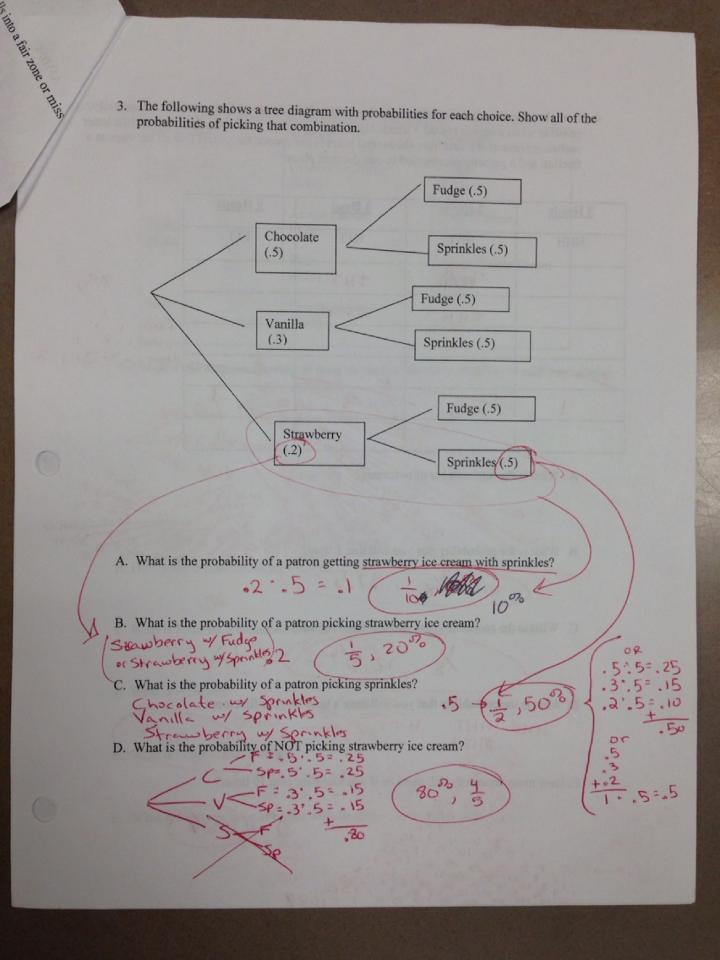 lls into a fair zone or miss
3. The following shows a tree diagram with probabilities for each choice. Show all of the
probabilities of picking that combination.
Fudge (.5)
Chocolate
(.5)
Sprinkles (.5)
Fudge (.5)
Vanilla
(.3)
Sprinkles (.5)
Fudge (.5)
Strawberry
(.2)
Sprinkles (.5)
A. What is the probability of a patron getting strawberry ice cream with sprinkles?
.2 · .5 = .1
1/10
10%
B. What is the probability of a patron picking strawberry ice cream?
Strawberry w/ Fudge
or Strawberry w/ Sprinkles
.2
1/5, 20%
C. What is the probability of a patron picking sprinkles?
Chocolate w/ Sprinkles
Vanilla w/ Sprinkles
Strawberry w/ Sprinkles
.5 → 1/2, 50%
OR
.5 · .5 = .25
.3 · .5 = .15
.2 · .5 = .10
+
.50
or
.5
.3
+ .2
1 · .5 = .5
D. What is the probability of NOT picking strawberry ice cream?
C
F = .5 · .5 = .25
Sp = .5 · .5 = .25
V
F = .3 · .5 = .15
Sp = .3 · .5 = .15
+
.80
S
F
Sp
80%, 4/5